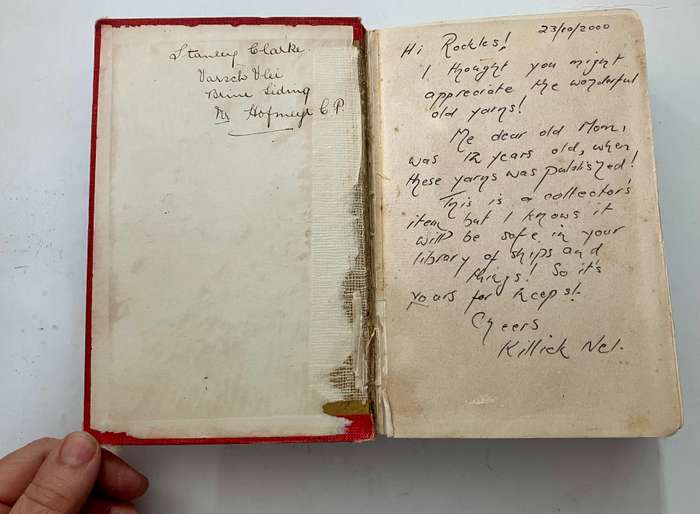 Stanley Clarke
Varsch Vlei
Brine Siding
Hofmeyr C.P.
23/10/2000
Hi Rockles!
I thought you might
appreciate the wonderful
old yarns!
Me dear old Mom,
was 12 years old, when
these yarns was published!
This is a collector's
item but I knows it
will be safe in your
library of ships and
things! So it's
yours for keeps!
Cheers
Killick Nel.